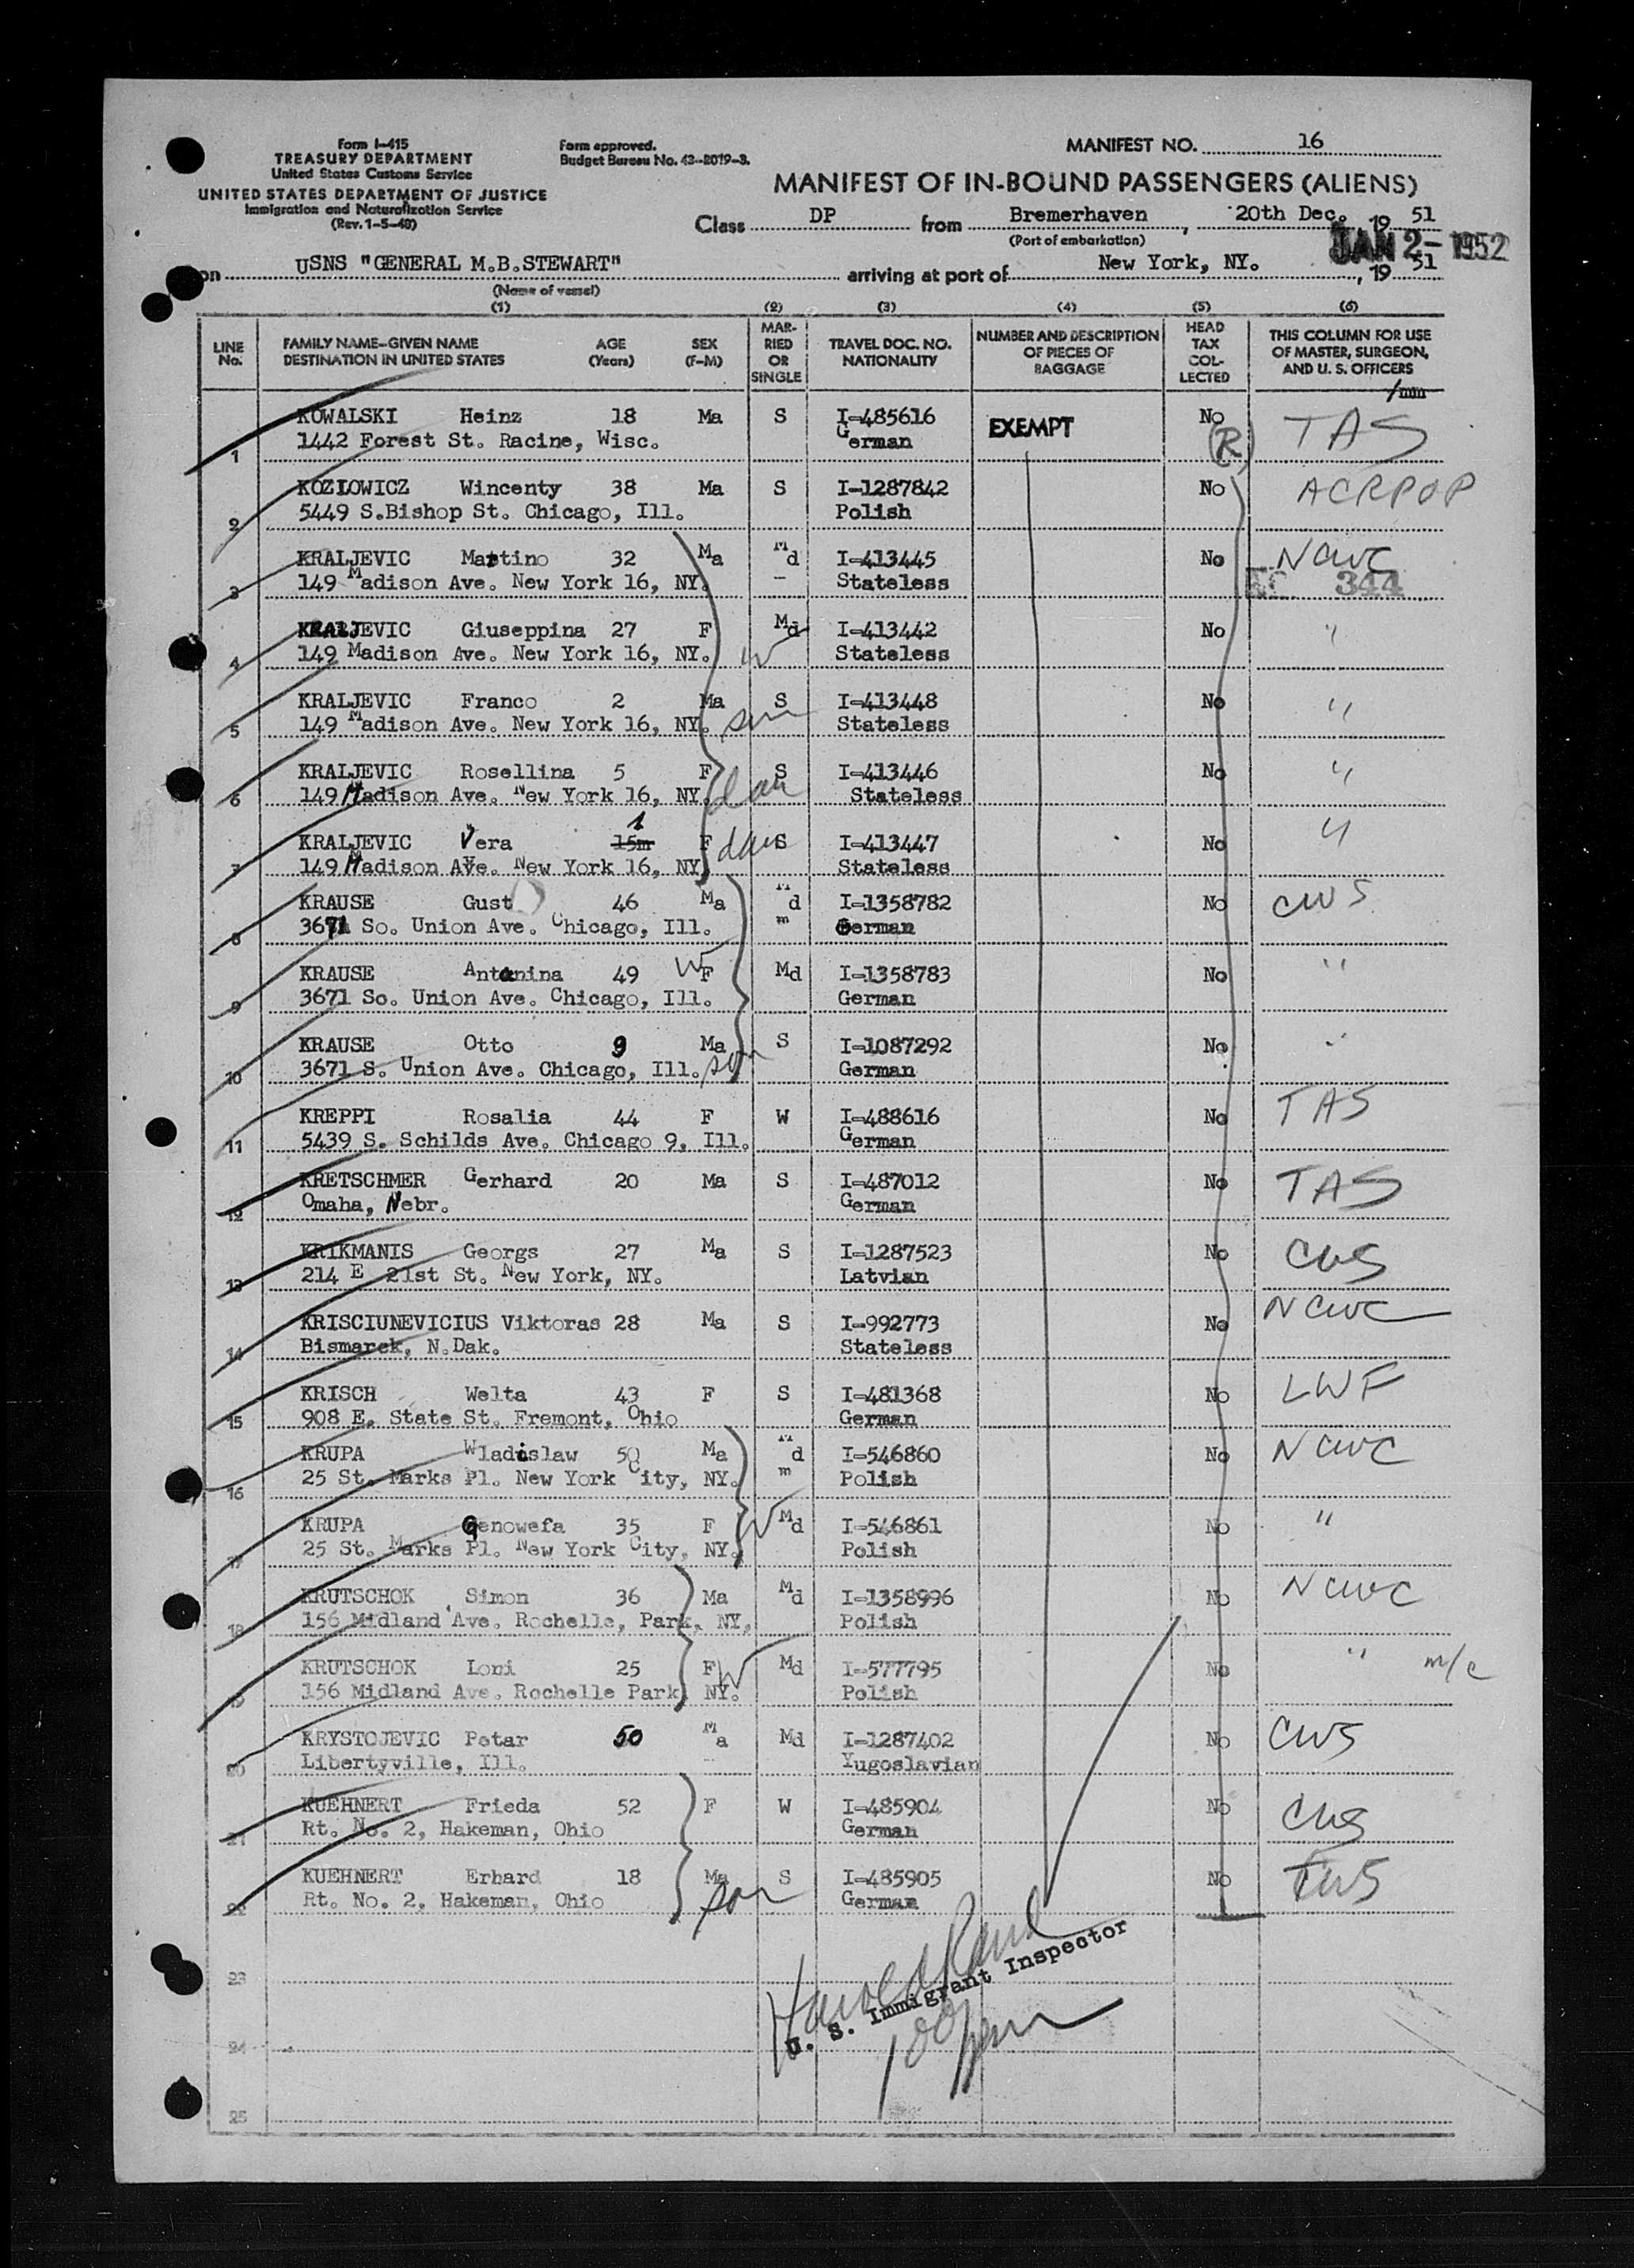 Form I-415
TREASURY DEPARTMENT
United States Customs Service
UNITED STATES DEPARTMENT OF JUSTICE
Immigration and Naturalization Service
(Rev. 1-5-48)
Form approved.
Budget Bureau No. 43-R019-3.
MANIFEST NO. 16
MANIFEST OF IN-BOUND PASSENGERS (ALIENS)
Class DP from Bremerhaven, 20th Dec. 19 51
(Port of embarkation)
JAN 2- 1952
on USNS "GENERAL M.B.STEWART" arriving at port of New York, NY., 19 51
(Name of vessel)
(1) (2) (3) (4) (5) (6)
LINE No. FAMILY NAME-GIVEN NAME DESTINATION IN UNITED STATES AGE (Years) SEX (F-M) MARRIED OR SINGLE TRAVEL DOC. NO. NATIONALITY NUMBER AND DESCRIPTION OF PIECES OF BAGGAGE HEAD TAX COLLECTED THIS COLUMN FOR USE OF MASTER, SURGEON, AND U. S. OFFICERS
KOWALSKI Heinz 18 Ma S I-485616 EXEMPT No TAS
1 1442 Forest St. Racine, Wisc. German (R)
KOZLOWICZ Wincenty 38 Ma S I-1287842 No ACRPOP
2 5449 S.Bishop St. Chicago, Ill. Polish
KRALJEVIC Martino 32 Ma Md I-413445 No NCWC
3 149 Madison Ave. New York 16, NY. Stateless 344
KRALJEVIC Giuseppina 27 F Md I-413442 No "
4 149 Madison Ave. New York 16, NY. W Stateless
KRALJEVIC Franco 2 Ma S I-413448 No "
5 149 Madison Ave. New York 16, NY. son Stateless
KRALJEVIC Rosellina 5 F S I-413446 No "
6 149 Madison Ave. New York 16, NY. dau Stateless
KRALJEVIC Vera 15m 1 F dau S I-413447 No "
7 149 Madison Ave. New York 16, NY Stateless
KRAUSE Gust 46 Ma Md I-1358782 No CWS
8 3671 So. Union Ave. Chicago, Ill. m German
KRAUSE Antanina 49 W F Md I-1358783 No "
9 3671 So. Union Ave. Chicago, Ill. German
KRAUSE Otto 9 Ma S I-1087292 No "
10 3671 S. Union Ave. Chicago, Ill. son German
KREPPI Rosalia 44 F W I-488616 No TAS
11 5439 S. Schilds Ave. Chicago 9, Ill. German
KRETSCHMER Gerhard 20 Ma S I-487012 No TAS
12 Omaha, Nebr. German
KRIKMANIS Georgs 27 Ma S I-1287523 No CWS
13 214 E 21st St. New York, NY. Latvian
KRISCIUNEVICIUS Viktoras 28 Ma S I-992773 No NCWC
14 Bismarck, N.Dak. Stateless
KRISCH Welta 43 F S I-481368 No LWF
15 908 E. State St. Fremont, Ohio German
KRUPA Wladislaw 50 Ma Md I-546860 No NCWC
16 25 St. Marks Pl. New York City, NY. m Polish
KRUPA Genowefa 35 F W Md I-546861 No "
17 25 St. Marks Pl. New York City, NY. Polish
KRUTSCHOK Simon 36 Ma Md I-1358996 No NCWC
18 156 Midland Ave. Rochelle, Park, NY. Polish
KRUTSCHOK Loni 25 F W Md I-577795 No " m/c
19 156 Midland Ave. Rochelle Park, NY. Polish
KRYSTOJEVIC Petar 50 Ma Md I-1287402 No CWS
20 Libertyville, Ill. Yugoslavian
KUEHNERT Frieda 52 F W I-485904 No CWS
21 Rt. No. 2, Hakeman, Ohio German
KUEHNERT Erhard 18 Ma S I-485905 No CWS
22 Rt. No. 2, Hakeman, Ohio son German
23
Harold Rand
U. S. Immigrant Inspector
24
25